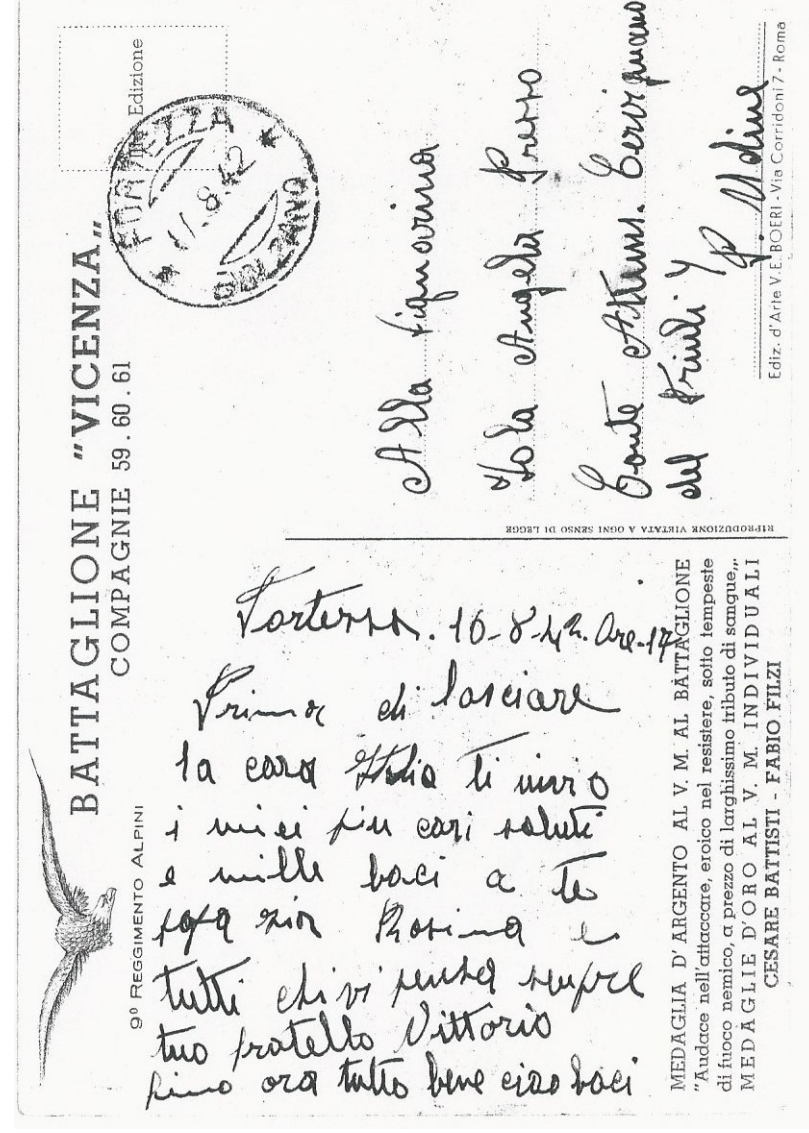 BATTAGLIONE "VICENZA"
COMPAGNIE 59. 60. 61
9º REGGIMENTO ALPINI
Edizione
FORTEZZA
11.8.42
BOLZANO
Fortezza. 10-8-42. Ore-17
Prima di lasciare
la cara Italia ti invio
i miei più cari saluti
e mille baci a te
papà zia Rosina e
tutti chi vi pensa sempre
tuo fratello Vittorio
fino ora tutto bene ciao baci
MEDAGLIA D'ARGENTO AL V. M. AL BATTAGLIONE
"Audace nell'attaccare, eroico nel resistere, sotto tempeste
di fuoco nemico, a prezzo di larghissimo tributo di sangue„.
MEDAGLIE D'ORO AL V. M. INDIVIDUALI
CESARE BATTISTI - FABIO FILZI
RIPRODUZIONE VIETATA A OGNI SENSO DI LEGGE
Alla signorina
Angela
Conte Cervignano
del Friuli 7
P. Udine
Ediz. d'Arte V. E. BOERI - Via Corridoni 7 - Roma